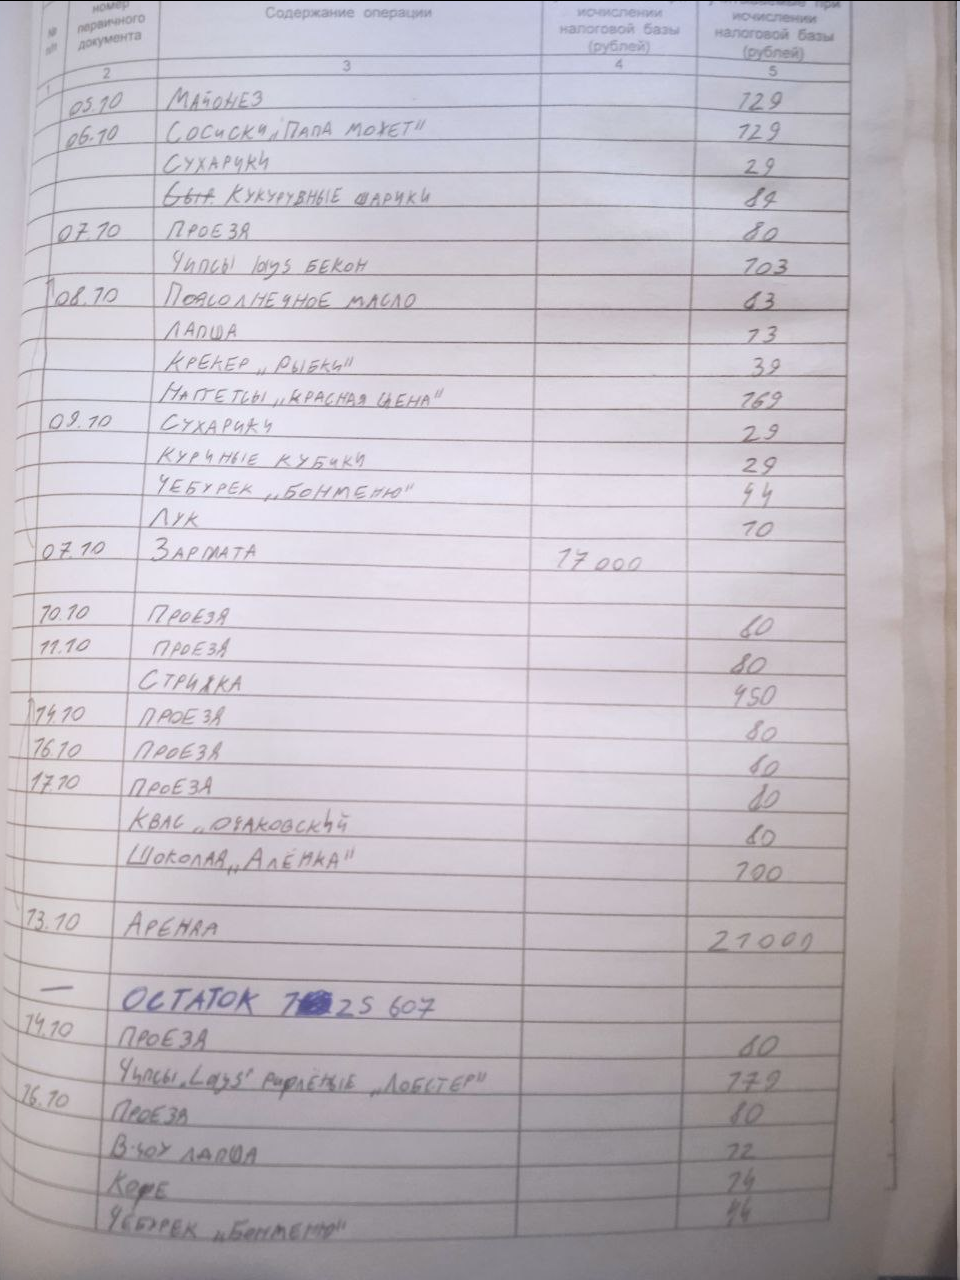 № п/п номер первичного документа Содержание операции исчислении налоговой базы (рублей) учитываемые при исчислении налоговой базы (рублей)
1 2 3 4 5
05.10 МАЙОНЕЗ 129
06.10 СОСИСКИ „ПАПА МОЖЕТ" 129
СУХАРИКИ 29
КУКУРУЗНЫЕ ШАРИКИ 84
07.10 ПРОЕЗД 80
ЧИПСЫ lays БЕКОН 103
08.10 ПОДСОЛНЕЧНОЕ МАСЛО 83
ЛАПША 13
КРЕКЕР „РЫБКИ" 39
НАГГЕТСЫ „КРАСНАЯ ЦЕНА" 169
09.10 СУХАРИКИ 29
КУРИНЫЕ КУБИКИ 29
ЧЕБУРЕК „БОНМЕНЮ" 44
ЛУК 10
07.10 ЗАРПЛАТА 17 000
10.10 ПРОЕЗД 80
11.10 ПРОЕЗД 80
СТРИЖКА 450
14.10 ПРОЕЗД 80
16.10 ПРОЕЗД 80
17.10 ПРОЕЗД 80
КВАС „ОЧАКОВСКИЙ 80
ШОКОЛАД „АЛЁНКА" 100
13.10 АРЕНДА 21000
— ОСТАТОК 25 607
14.10 ПРОЕЗД 80
ЧИПСЫ „Lays" РИФЛЁНЫЕ „ЛОБСТЕР" 179
16.10 ПРОЕЗД 80
ЛАПША 12
КОФЕ 14
ЧЕБУРЕК „БОНМЕНЮ" 44